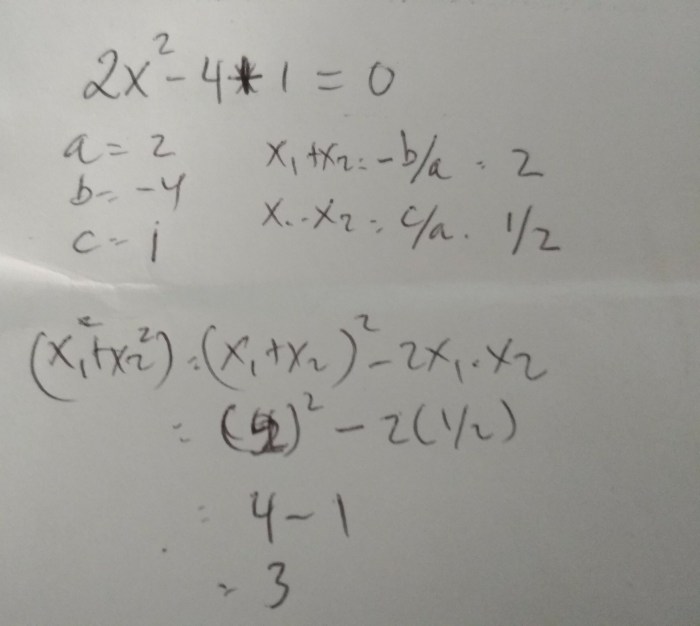 2x² - 4x + 1 = 0
a = 2 x₁ + x₂ = -b/a = 2
b = -4 x₁ . x₂ = c/a = 1/2
c = 1
(x₁² + x₂²) = (x₁ + x₂)² - 2x₁ . x₂
= (2)² - 2(1/2)
= 4 - 1
= 3